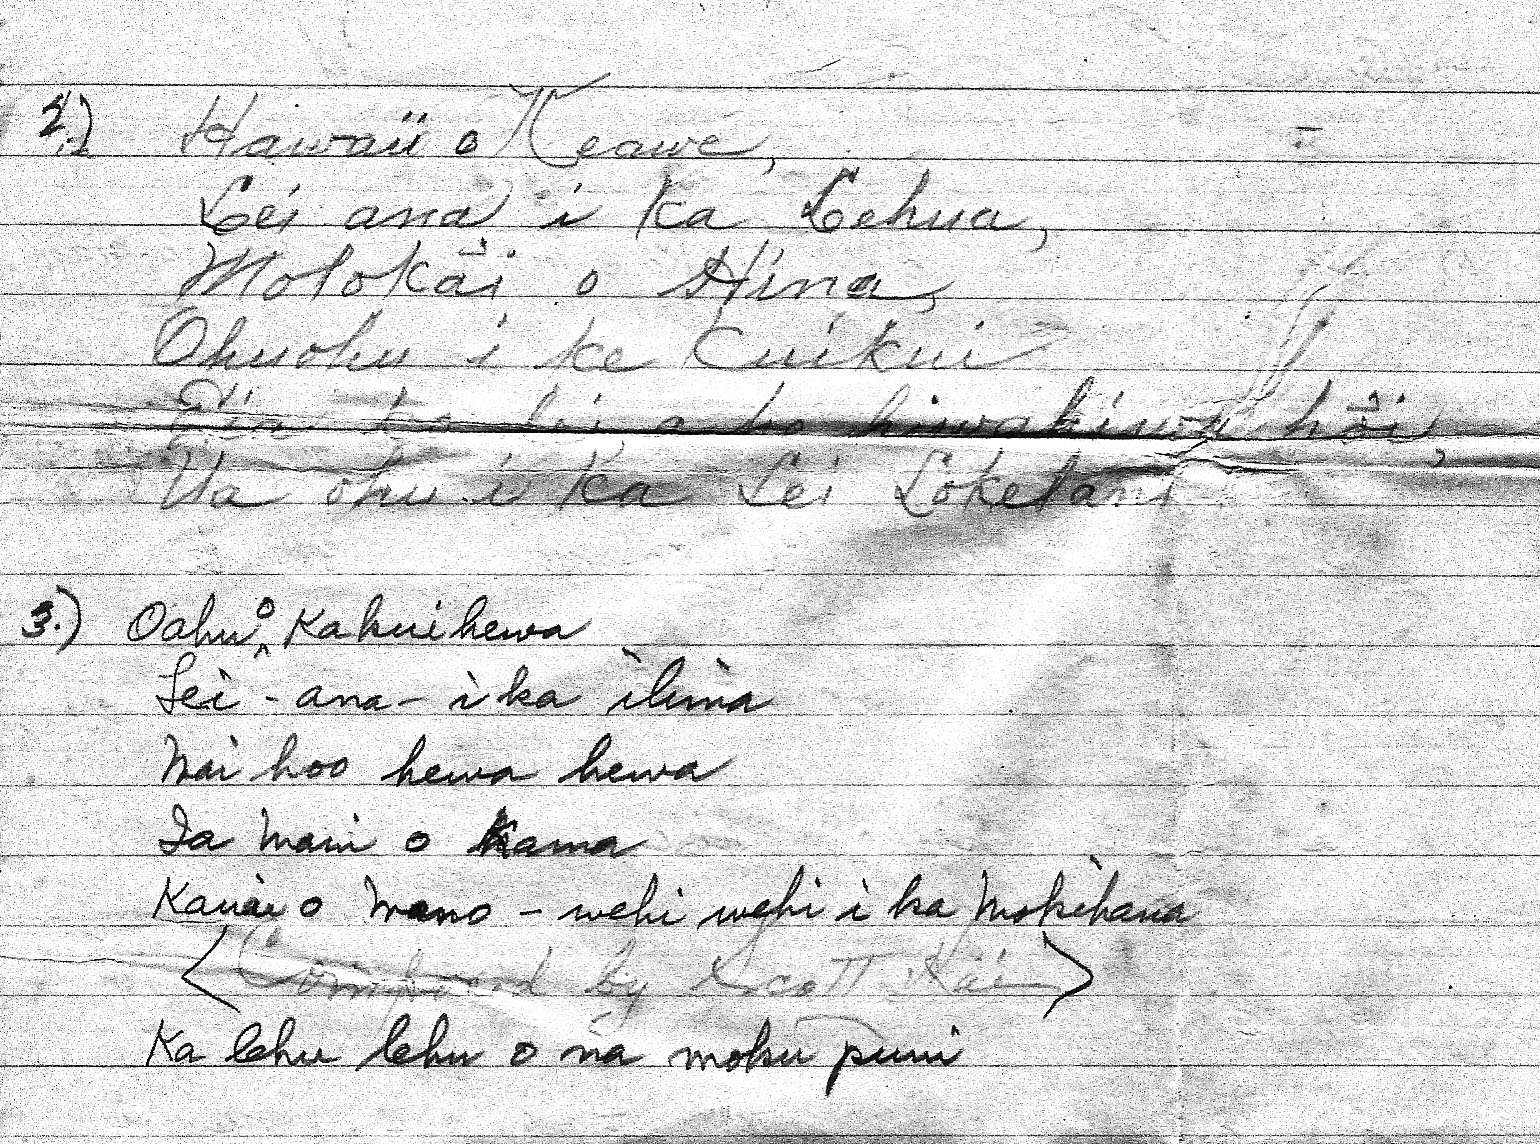 2.) Hawaii o Keawe,
Lei ana i ka Lehua,
Molokai o Hina,
Ohuohu i ke Kuikui
Eia ka lei a ke hiwahiwa hoi,
Ua ohu i ka Lei Lokelani
3.) Oahu o Kakuihewa
Lei - ana - i ka ilima
Mai hoo hewa hewa
Ia Maui o Kama
Kauai o Mano - wehi wehi i ka Mokihana
<Composed by Scott Kai>
Ka lehu lehu o na moku puni